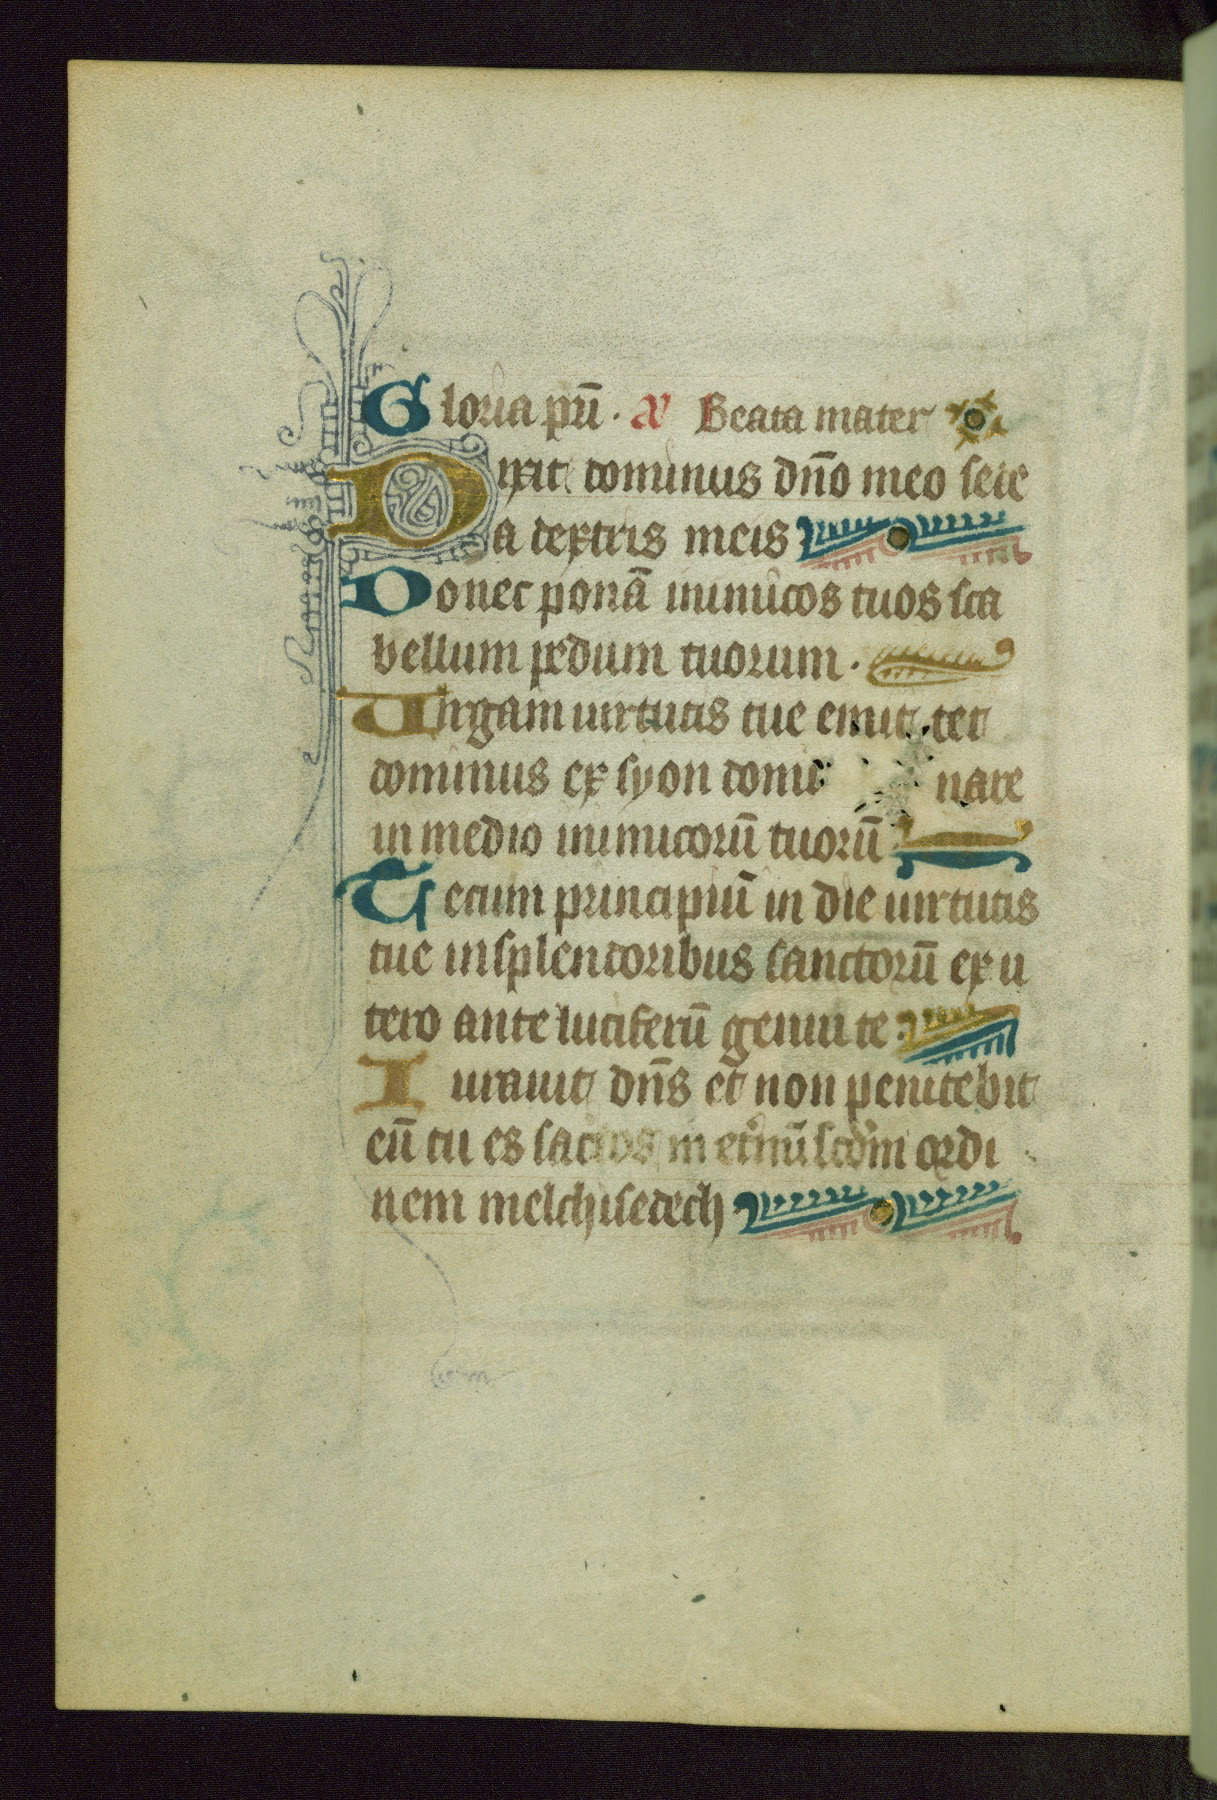 Gloria pr̄i · A Beata mater
Dixit dominus dn̄o meo sede
a dextris meis
Donec ponā inimicos tuos sca
bellum pedum tuorum ·
Uirgam uirtutis tue emit tet
dominus ex syon domi nare
in medio inimicorū tuorū
Tecum principiū in die uirtutis
tue in splendoribus sanctorū ex u
tero ante luciferū genui te ·
Iurauit dn̄s et non penitebit
eū tu es in scdm ordi
nem melchisedech